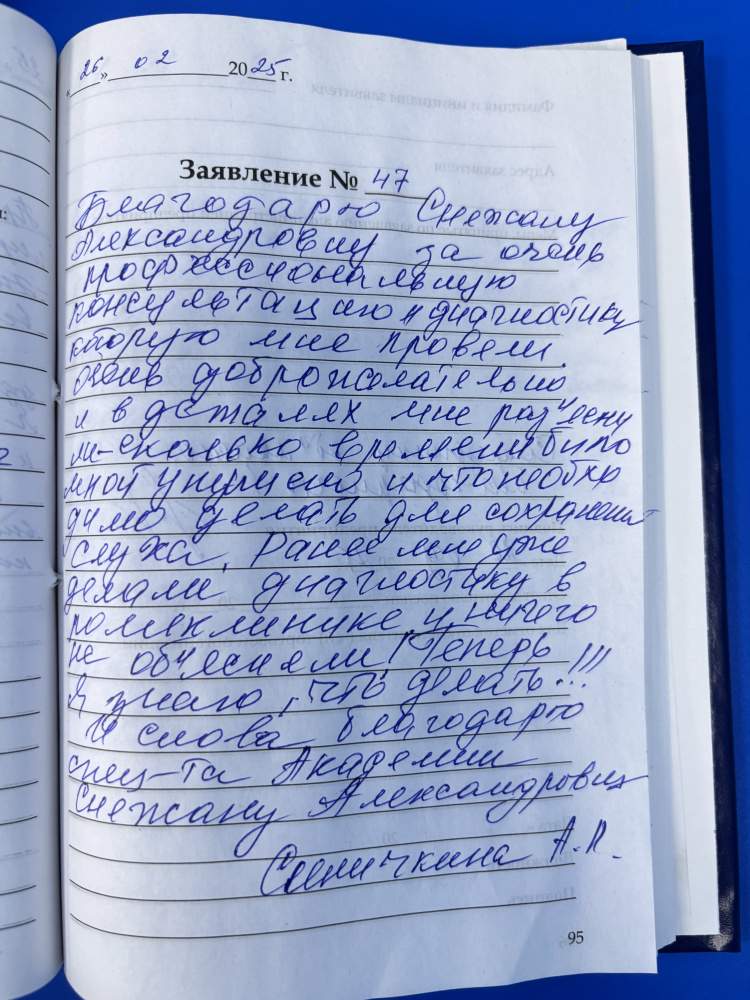 « 26 » 02 2025 г.
Заявление № 47
Благодарю Снежану
Александровну за очень
профессиональную
консультацию и диагностику
которую мне провели.
очень доброжелательно
и в деталях мне разъясни
ли - сколько времени было
мной упущено и что необхо
димо делать для сохранения
слуха. Ранее мне уже
делали диагностику в
поликлинике и ничего
не объясняли! Теперь
я знаю, что делать!!!
И снова благодарю
спец-та Академии
Снежану Александровну
А.П.
95